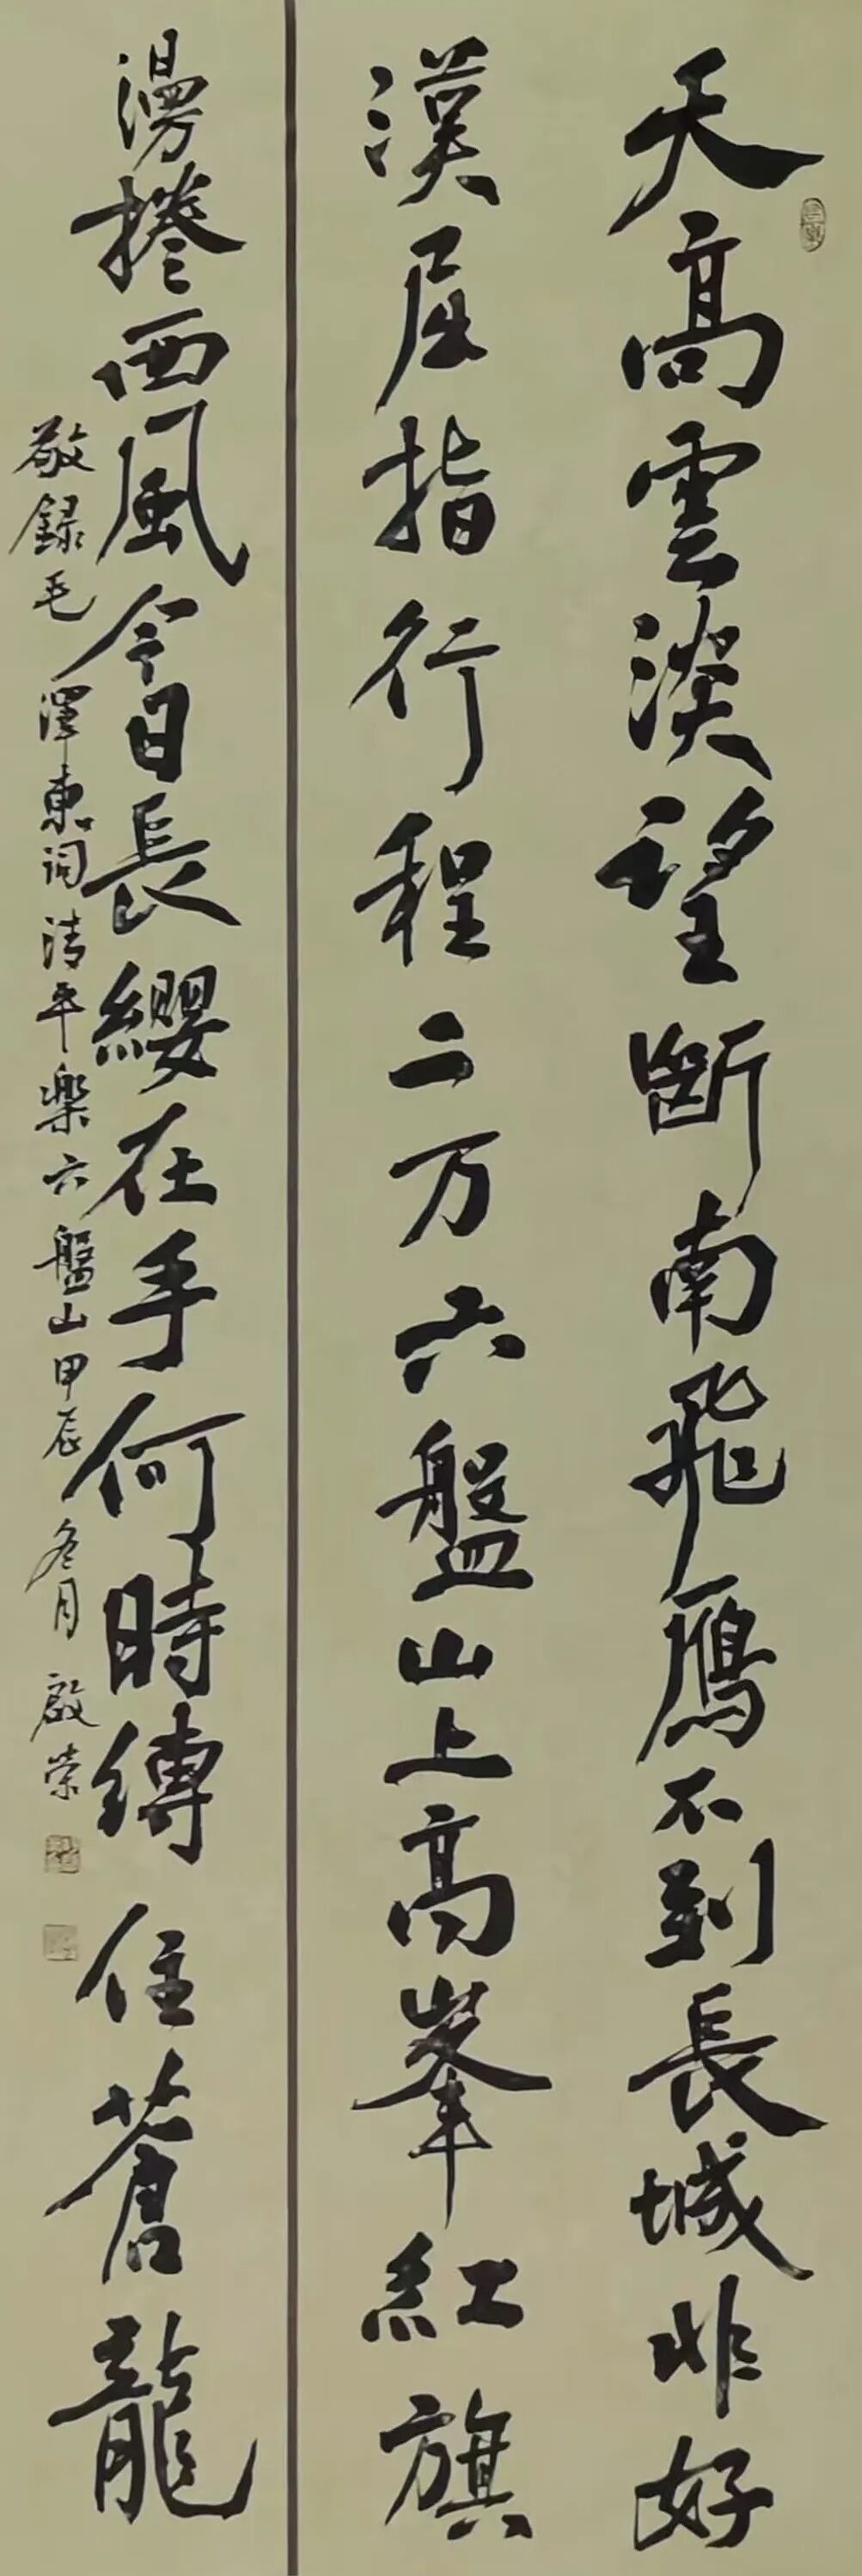 天高雲淡望斷南飛鴈不到長城非好
漢屈指行程二万六盤山上高峯紅旗
漫捲西風今日長纓在手何時縛住蒼龍
敬録毛澤東詞清平樂六盤山甲辰冬月啟榮